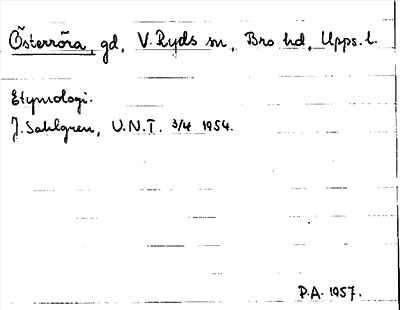 Österröra, gd, V. Ryds sn, Bro hd, Upps. l.
Etymologi.
J. Sahlgren, U.N.T. 3/4 1954.
P.A. 1957.